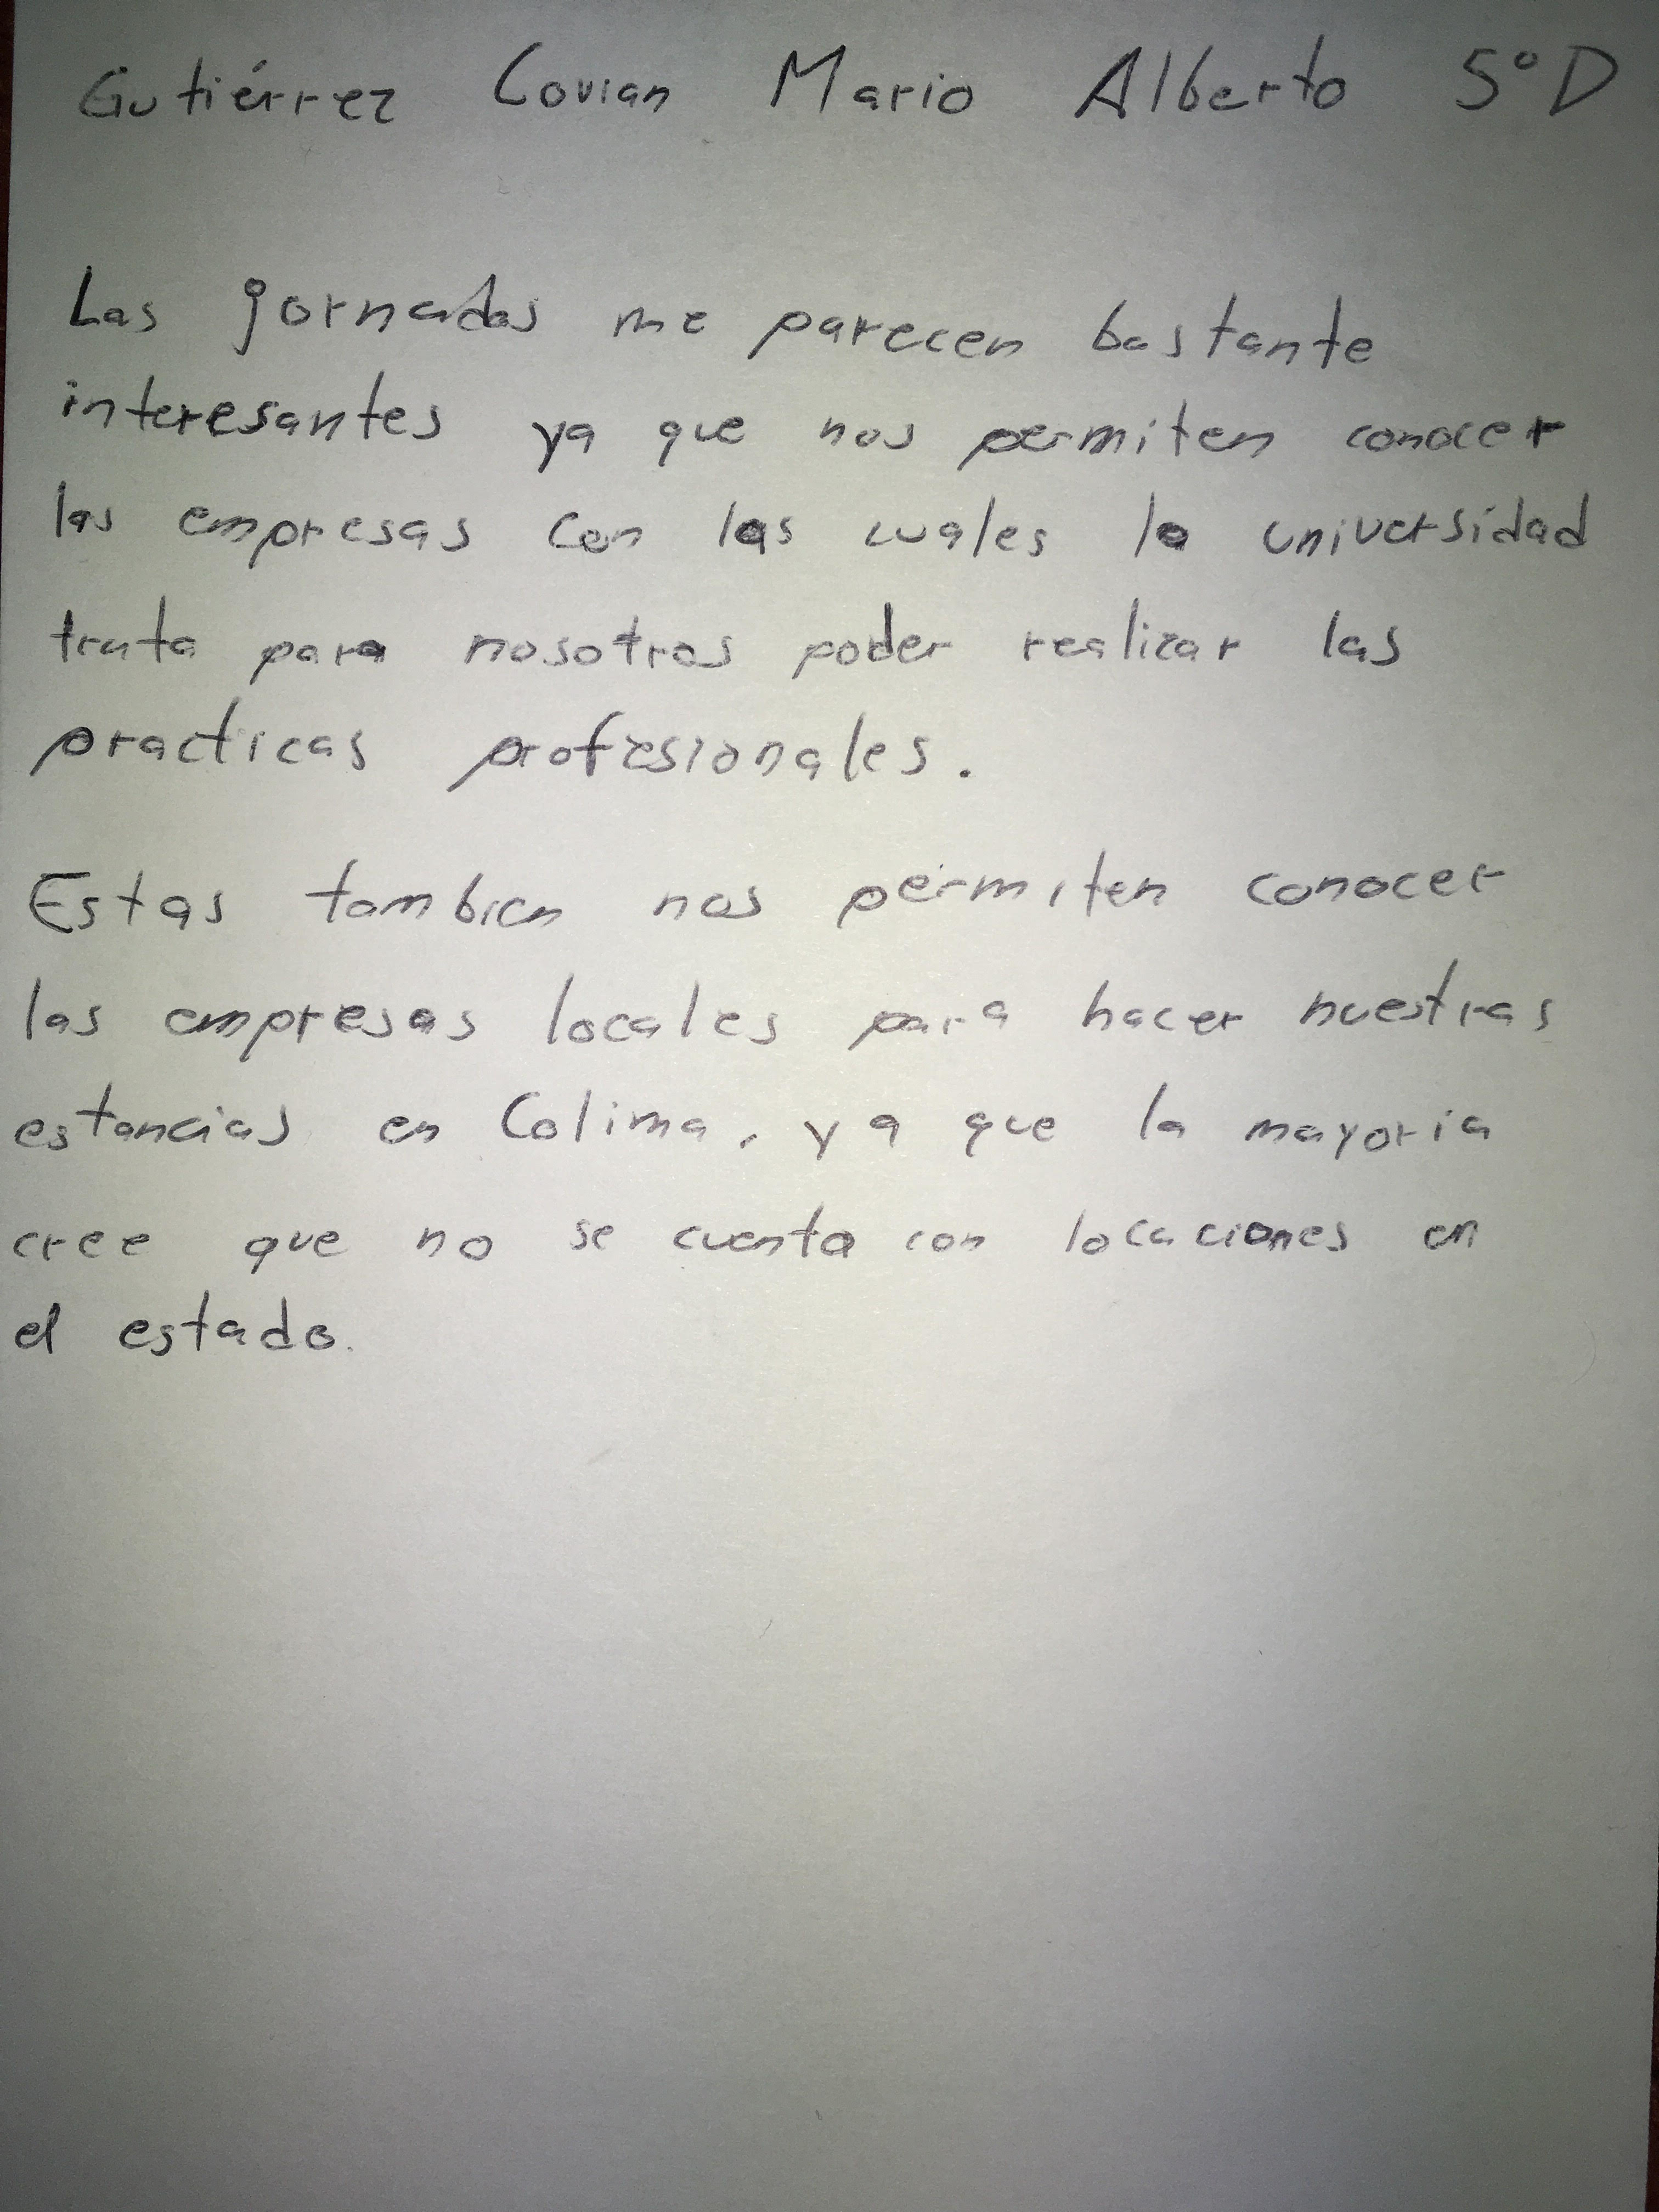 Gutiérrez Covian Mario Alberto 5°D
Las jornadas me parecen bastante
interesantes ya que nos permiten conocer
las empresas con las cuales la universidad
trata para nosotros poder realizar las
practicas profesionales.
Estas tambien nos permiten conocer
las empresas locales para hacer nuestras
estancias en Colima, ya que la mayoria
cree que no se cuenta con locaciones en
el estado.